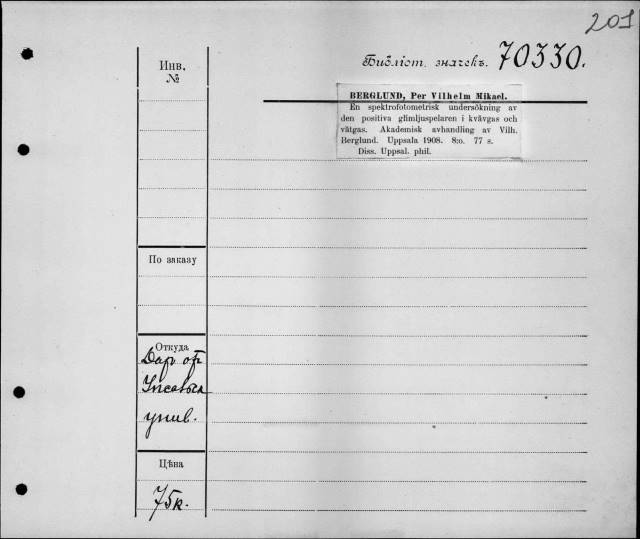 201
Библіот. значекъ. 70330.
Инв.
№
BERGLUND, Per Vilhelm Mikael.
En spektrofotometrisk undersökning av
den positiva glimljuspelaren i kvävgas och
vätgas. Akademisk avhandling av Vilh.
Berglund. Uppsala 1908. 8:o. 77 s.
Diss. Uppsal. phil.
По заказу
Откуда
Даръ от
унив.
Цѣна
75к.